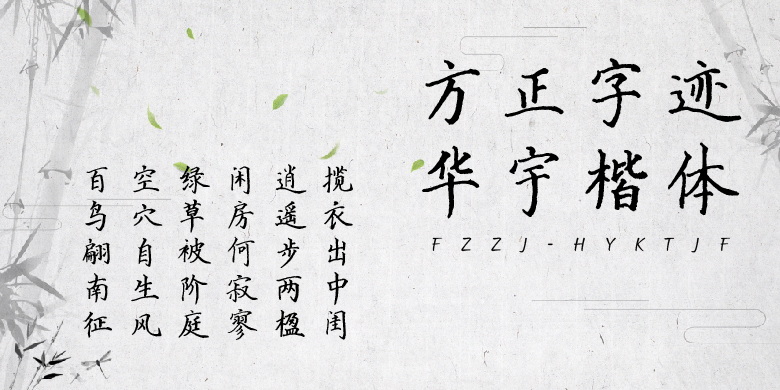 方正字迹
华宇楷体
FZZJ-HYKTJF
揽衣出中闺
逍遥步两楹
闲房何寂寥
绿草被阶庭
空穴自生风
百鸟翩南征